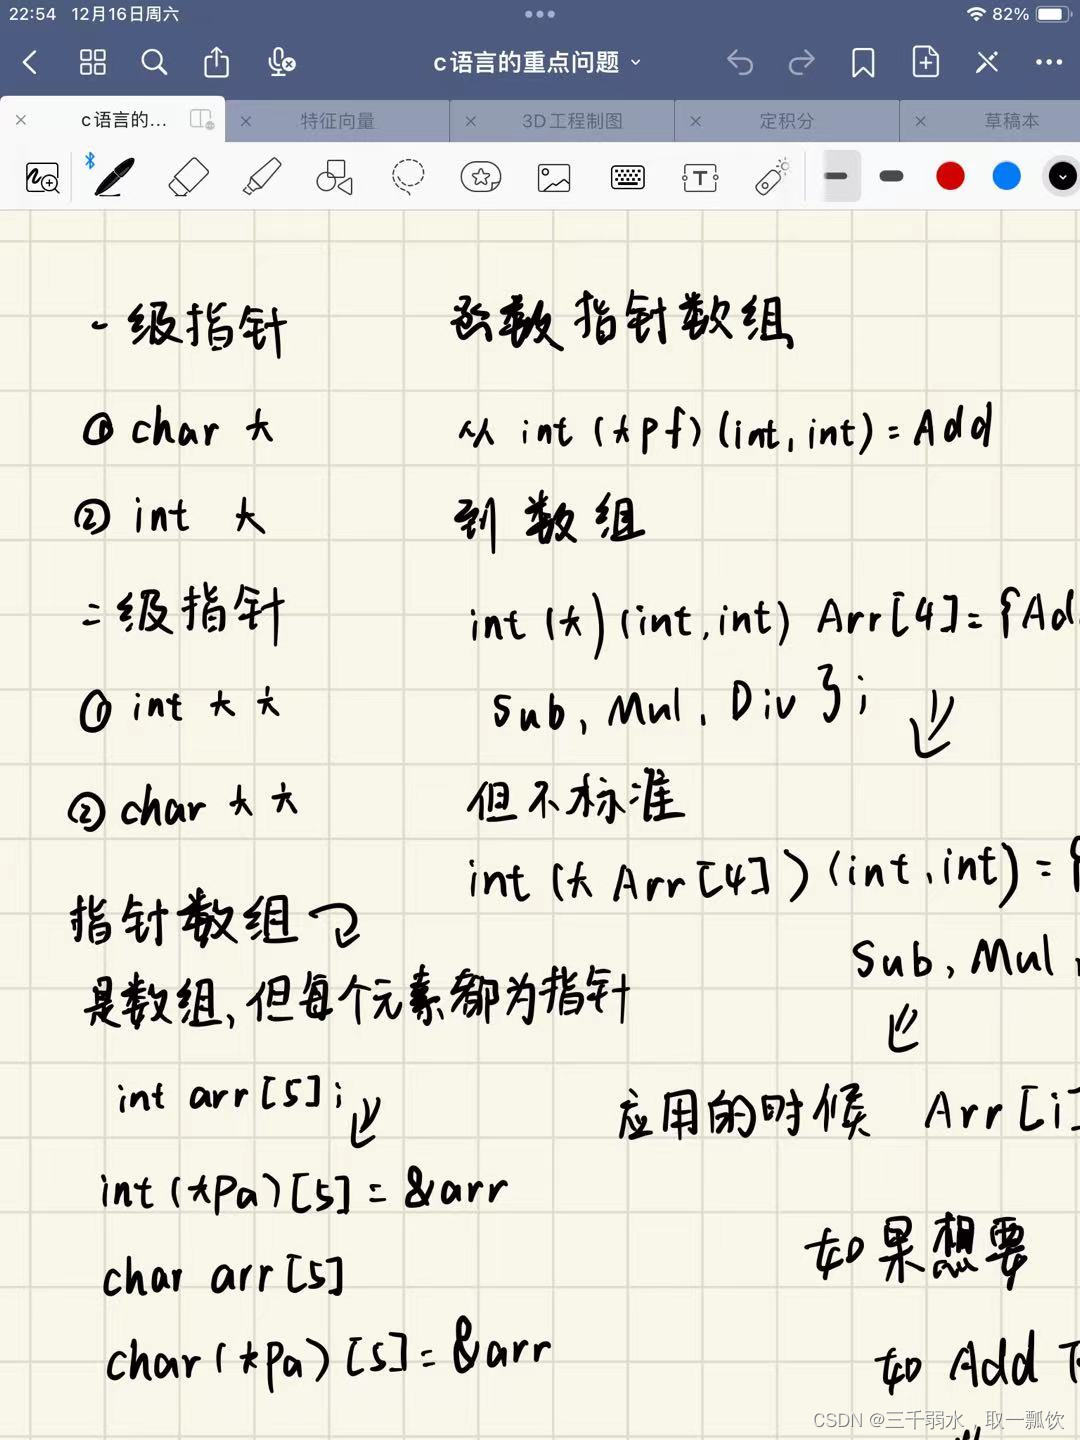 22:54 12月16日周六
82%
c语言的重点问题
c语言的...
特征向量
3D工程制图
定积分
草稿本
一级指针
① char *
② int *
二级指针
① int * *
② char * *
指针数组
是数组,但每个元素都为指针
int arr[5];
int (*pa)[5] = &arr
char arr[5]
char (*pa)[5] = &arr
函数指针数组
从 int (*pf)(int, int) = Add
到数组
int (*)(int, int) Arr[4] = {Ad
Sub, Mul, Div };
但不标准
int (* Arr[4])(int, int) = {
Sub, Mul,
应用的时候 Arr[i]
如果想要
如 Add
CSDN @三千弱水,取一瓢饮